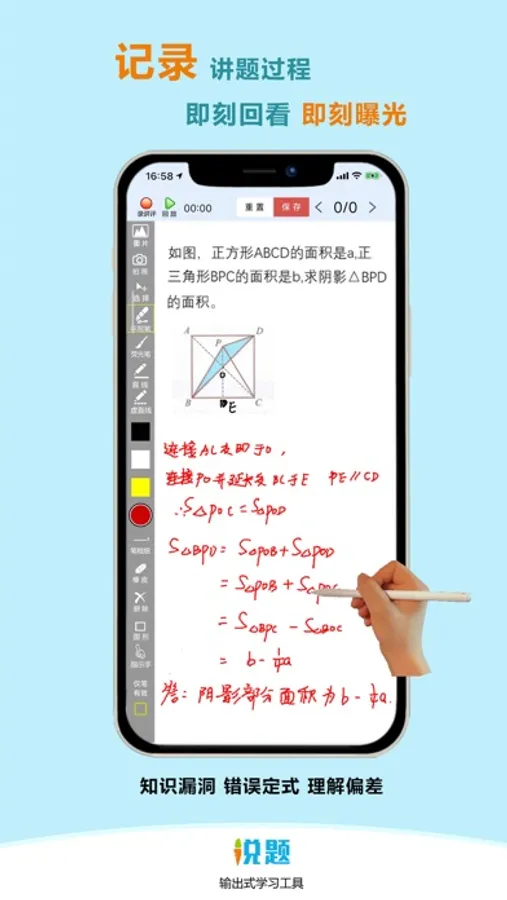 记录 讲题过程
即刻回看 即刻曝光
16:58
录讲评 回放 00:00 重置 保存 < 0/0 >
图片
拍照
选择
荧光笔
直线
虚直线
笔粗细
橡皮
删除
图形
指示手
仅笔
有效
如图，正方形ABCD的面积是a,正
三角形BPC的面积是b,求阴影△BPD
的面积。
A D
P
O
B E C
连接AC交BD于O，
连接PO并延长交BC于E PE∥CD
∴S△POC=S△POD
S△BPD=S△POB+S△POD
=S△POB+S△POC
=S△BPC-S△BOC
=b-¼a
答：阴影部分面积为b-¼a.
知识漏洞 错误定式 理解偏差
说题
输出式学习工具